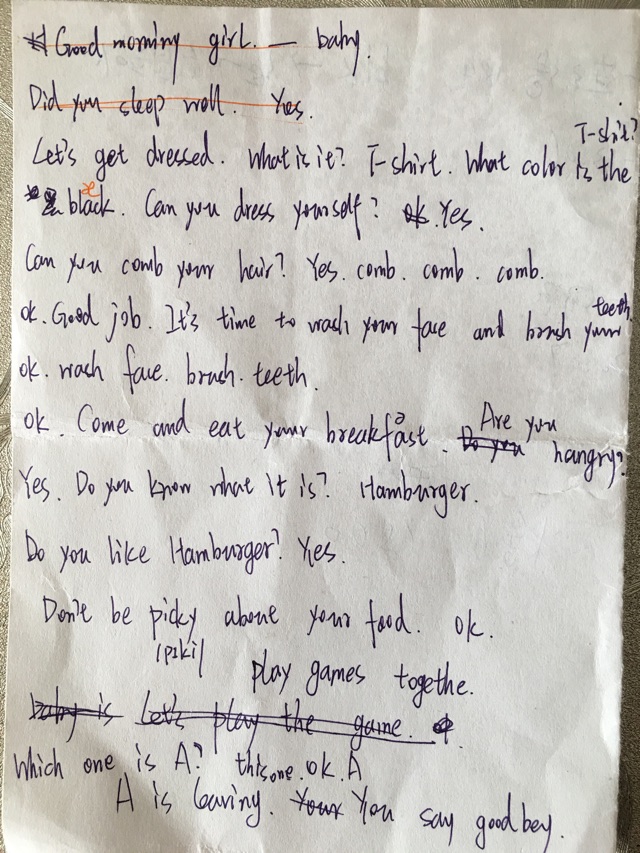 Good morning girl. — baby.
Did you sleep well. Yes.
Let's get dressed. What is it? T-shirt. What color is the T-shit?
black. Can you dress yourself? ok. Yes.
æ
Can you comb your hair? Yes. comb. comb. comb.
ok. Good job. It's time to wash your face and brush your teeth.
ok. wash face. brush. teeth.
ok. Come and eat your breakfast. Do you Are you hangry?
ə
Yes. Do you know what it is? Hamburger.
Do you like Hamburger? Yes.
Don't be picky about your food. ok.
|pɪki|
play games togethe.
baby is Let's play the game.
Which one is A? this one. ok. A
A is leaving. Your You say good bey.